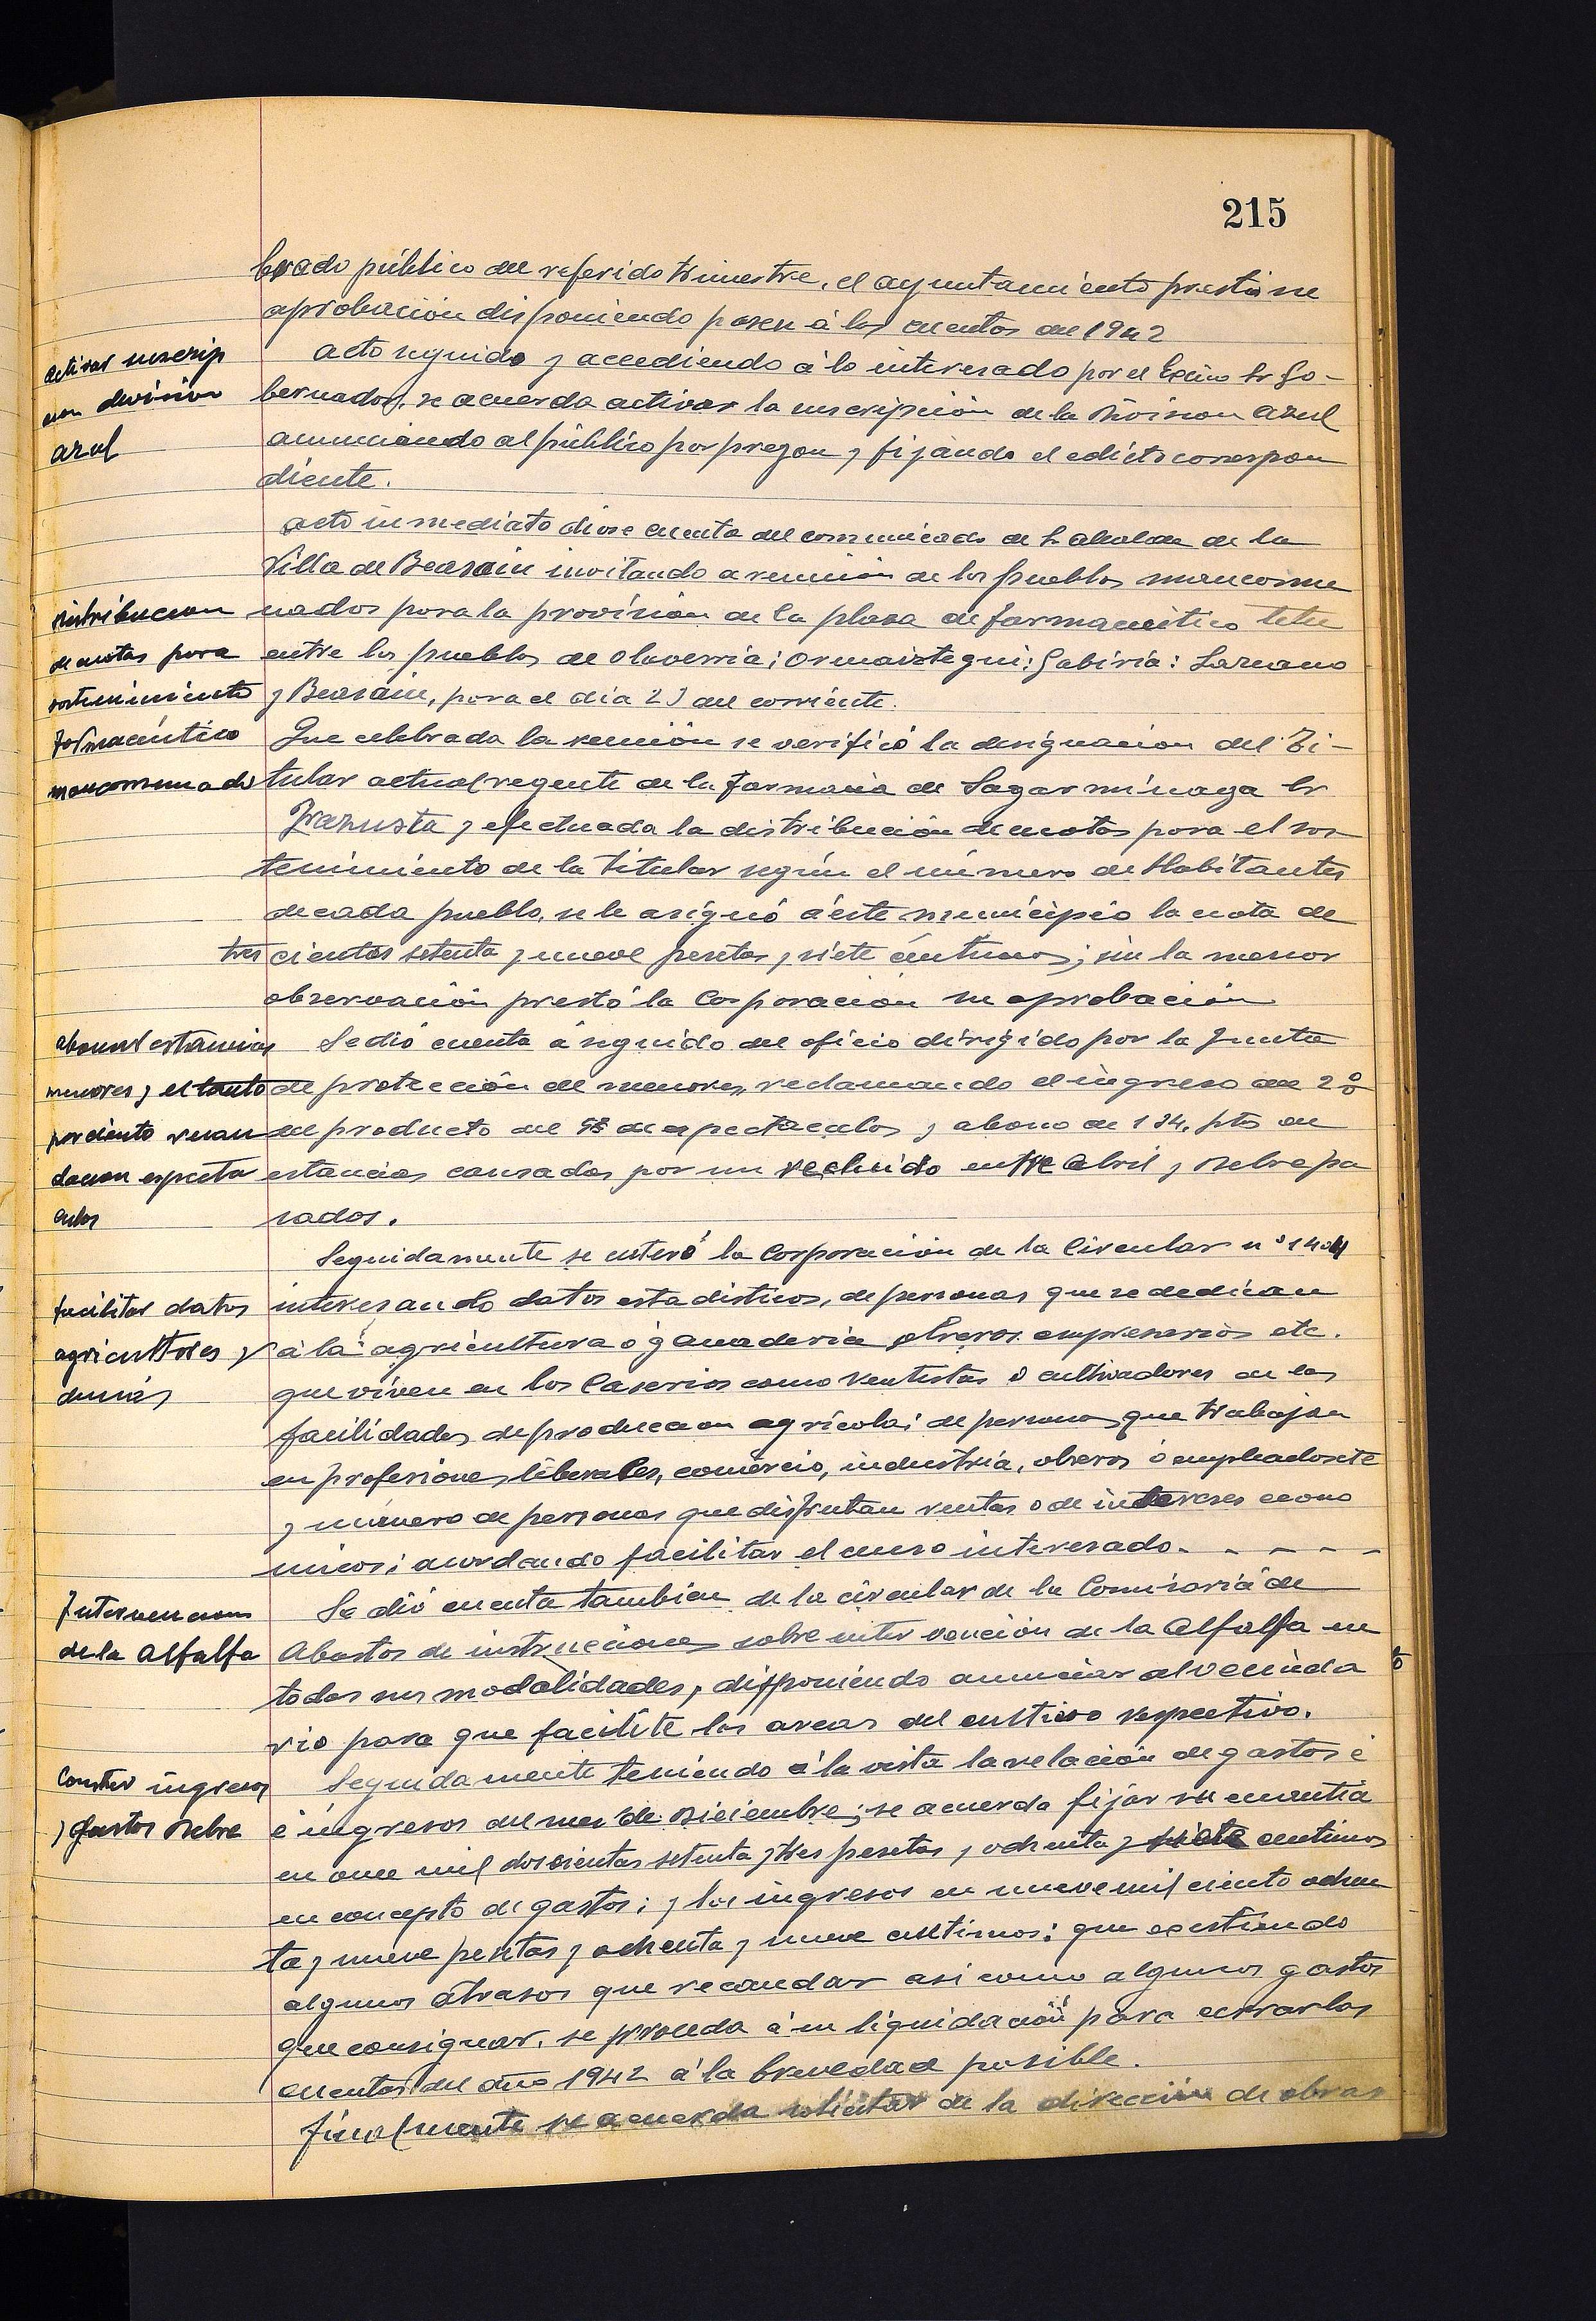 215
brado público del referido trimestre, el ayuntamiento prestó su
aprobación disponiendo pasen á las cuentas de 1942
activar inscrip
cion division
azul
acto seguido y accediendo á lo interesado por el Excmo Sr Go-
bernador, se acuerda activar la inscripción de la Division azul
anunciando al público por pregon y fijando el edicto correspon
diente.
acto inmediato diose cuenta del comunicado de Sr alcalde de la
Villa de Beasain invitando a reunion de los pueblos mancomu
distribucion
de cuotas para
sostenimiento
Farmacéutico
mancomunado
nados para la provisión de la plaza de farmaceútico titu
entre los pueblos de Olaverria; Ormaiztegui; Gabiria: Lazcano
y Beasain, para el dia 23 del corriente.
Que celebrada la reunión se verificó la designacion del Ti-
tular actual regente de la Farmacia de Sagarminaga Sr
Irazusta y efectuada la distribución de cuotas para el sos
tenimiento de la titular según el número de Habitantes
de cada pueblo, se le asignó á este municipio la cuota de
tres cientas setenta y nueve pesetas y siete céntimos; sin la menor
observación prestó la Corporación su aprobación
abonar estancias
menores y el tanto
por ciento recau
dacion especta
culos
Se dió cuenta á seguido del oficio dirigido por la Junta
de protección de menores, reclamando el ingreso del 2%
del producto del 5% de espectaculos y abono de 134, pts de
estancias causadas por un recluido entre Abril y Dbre pa
sados.
Seguidamente se enteró la Corporación de la Circular nº 1404
facilitar datos
agricultores y
demás
interesando datos estadisticos, de personas que se dedican
á la agricultura ó ganaderia obreros empresarios etc.
que viven en los Caserios como rentistas ó cultivadores de las
facilidades de produccion agrícola; de personas que trabajan
en profesiones liberales, comercio, industria, obreros ó empleados etc
y número de personas que disfrutan rentas o de intereses econo
micos; acordando facilitar el censo interesado. - - - - -
Intervencion
de la alfalfa
Se dió cuenta tambien de la circular de la Comisaria de
Abastos de instrucciones sobre intervención de la alfalfa en
todas sus modalidades, disponiendo anunciar al vecinda
rio para que facilite las areas del cultivo respectivo.
Cuentas ingresos
y gastos Dbre
Seguidamente teniendo á la vista la relación de gastos é
é ingresos del mes de Diciembre; se acuerda fijar su cuantia
en once mil doscientas setenta y tres pesetas y ochenta y siete centimos
en concepto de gastos; y los ingresos en nueve mil ciento ochen
ta y nueve pesetas y ochenta y nueve centimos: que existiendo
algunos atrasos que recaudar asi como algunos gastos
que consignar, se proceda á su liquidación para cerrar las
cuentas del año 1942 á la brevedad posible.
finalmente se acuerda solicitar de la dirección de obras